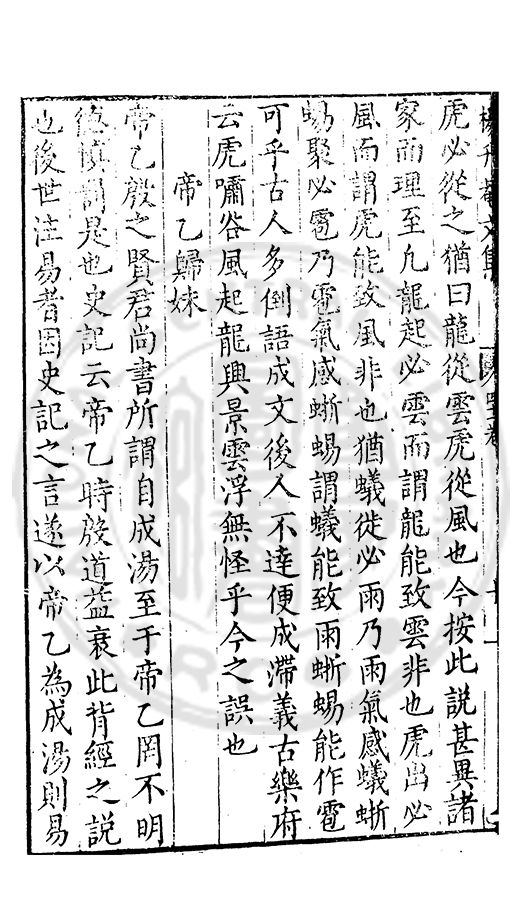 虎必從之猶曰龍從雲虎從風也今按此說甚異諸
家而理至九龍起必雲而謂龍能致雲非也虎出必
風而謂虎能致風非也猶蟻徙必雨乃雨氣感蟻蜥
蜴聚必雹乃雹氣感蜥蜴謂蟻能致雨蜥蜴能作雹
可乎古人多倒語成文後人不達便成滯義古樂府
云虎嘯谷風起龍興景雲浮無怪乎今之誤也
帝乙歸妹
帝乙殷之賢君尚書所謂自成湯至于帝乙罔不明
德慎罰是也史記云帝乙時殷道益衰此背經之說
也後世注易者因史記之言遂以帝乙為成湯則易